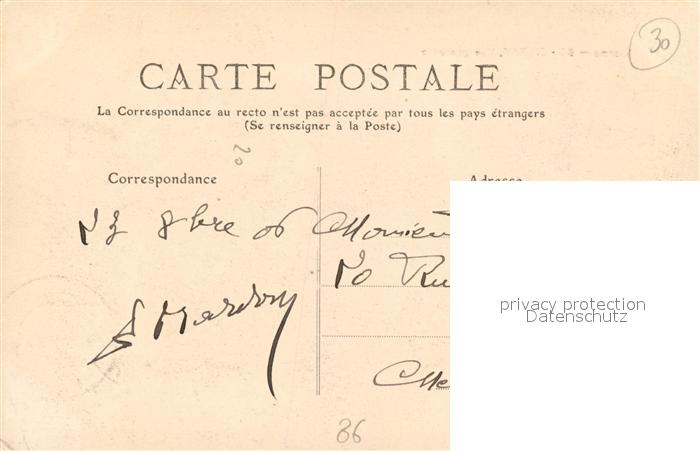 30
CARTE POSTALE
La Correspondance au recto n'est pas acceptée par tous les pays étrangers
(Se renseigner à la Poste)
20
Correspondance
8bre 06
Mardon
Monsieu
10 Ru
privacy protection
Datenschutz
86